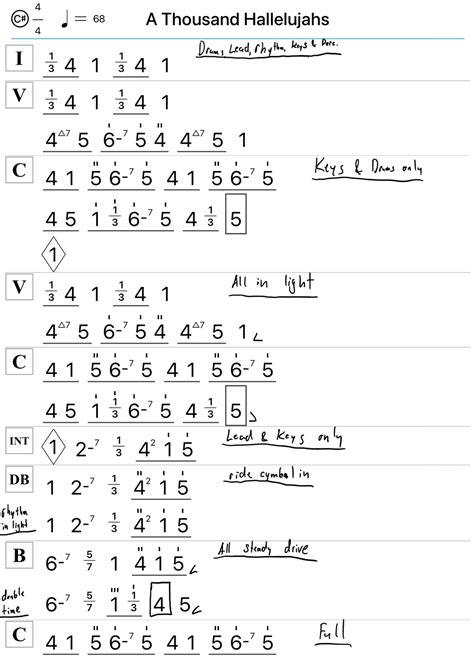 C# 4/4 ♩ = 68 A Thousand Hallelujahs
I 1/3 4 1 1/3 4 1 Drums, Lead, rhythm, keys & Perc.
V 1/3 4 1 1/3 4 1
4△7 5 6-7 5 4 4△7 5 1
C 4 1 5 6-7 5 4 1 5 6-7 5 Keys & Drums only
4 5 1 1/3 6-7 5 4 1/3 5
1
V 1/3 4 1 1/3 4 1 All in light
4△7 5 6-7 5 4 4△7 5 1 <
C 4 1 5 6-7 5 4 1 5 6-7 5
4 5 1 1/3 6-7 5 4 1/3 5 >
INT 1 2-7 1/3 4² 1 5 Lead & Keys only
DB 1 2-7 1/3 4² 1 5 ride cymbal in
rhythm in light 1 2-7 1/3 4² 1 5
B 6-7 5/7 1 4 1 5 < All steady drive
double time 6-7 5/7 1 1/3 4 5 <
C 4 1 5 6-7 5 4 1 5 6-7 5 Full